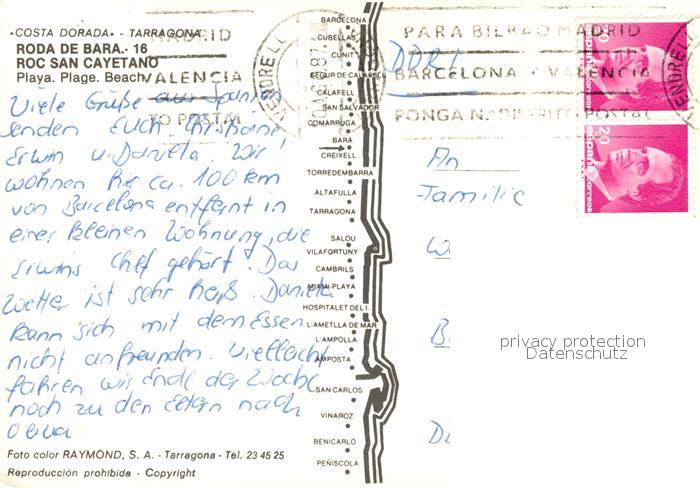 «COSTA DORADA» - TARRAGONA
RODA DE BARA.- 16
ROC SAN CAYETANO
Playa. Plage. Beach
MADRID
VALENCIA
TO POSTAL
VENDRELL
87
PARA BILBAO MADRID
BARCELONA Y VALENCIA
PONGA N. DISTRITO POSTAL
VENDRELL
DDR!
20
españa correos
20
españa correos
Viele Grüße aus Spanien
senden Euch Christiane
Erwin u. Daniela. Wir
wohnen hier ca. 100 km
von Barcelona entfernt in
einer kleinen Wohnung, die
Erwins Chef gehört. Das
Wetter ist sehr heiß. Daniela
kann sich mit dem Essen
nicht anfreunden. Vielleicht
fahren wir Ende der Woche
noch zu den Eltern nach
Oliva
BARCELONA
CUBELLAS
CUNIT
SEGUR DE CALAFELL
CALAFELL
SAN SALVADOR
COMARRUGA
BARÁ
CREIXELL
TORREDEMBARRA
ALTAFULLA
TARRAGONA
SALOU
VILAFORTUNY
CAMBRILS
MIAMI-PLAYA
HOSPITALET DEL I.
L'AMETLLA DE MAR
L'AMPOLLA
AMPOSTA
SAN CARLOS
VINAROZ
BENICARLO
PEÑISCOLA
An
Familie
W
B
D
privacy protection
Datenschutz
Foto color RAYMOND, S. A. - Tarragona - Tel. 23 45 25
Reproducción prohibida - Copyright